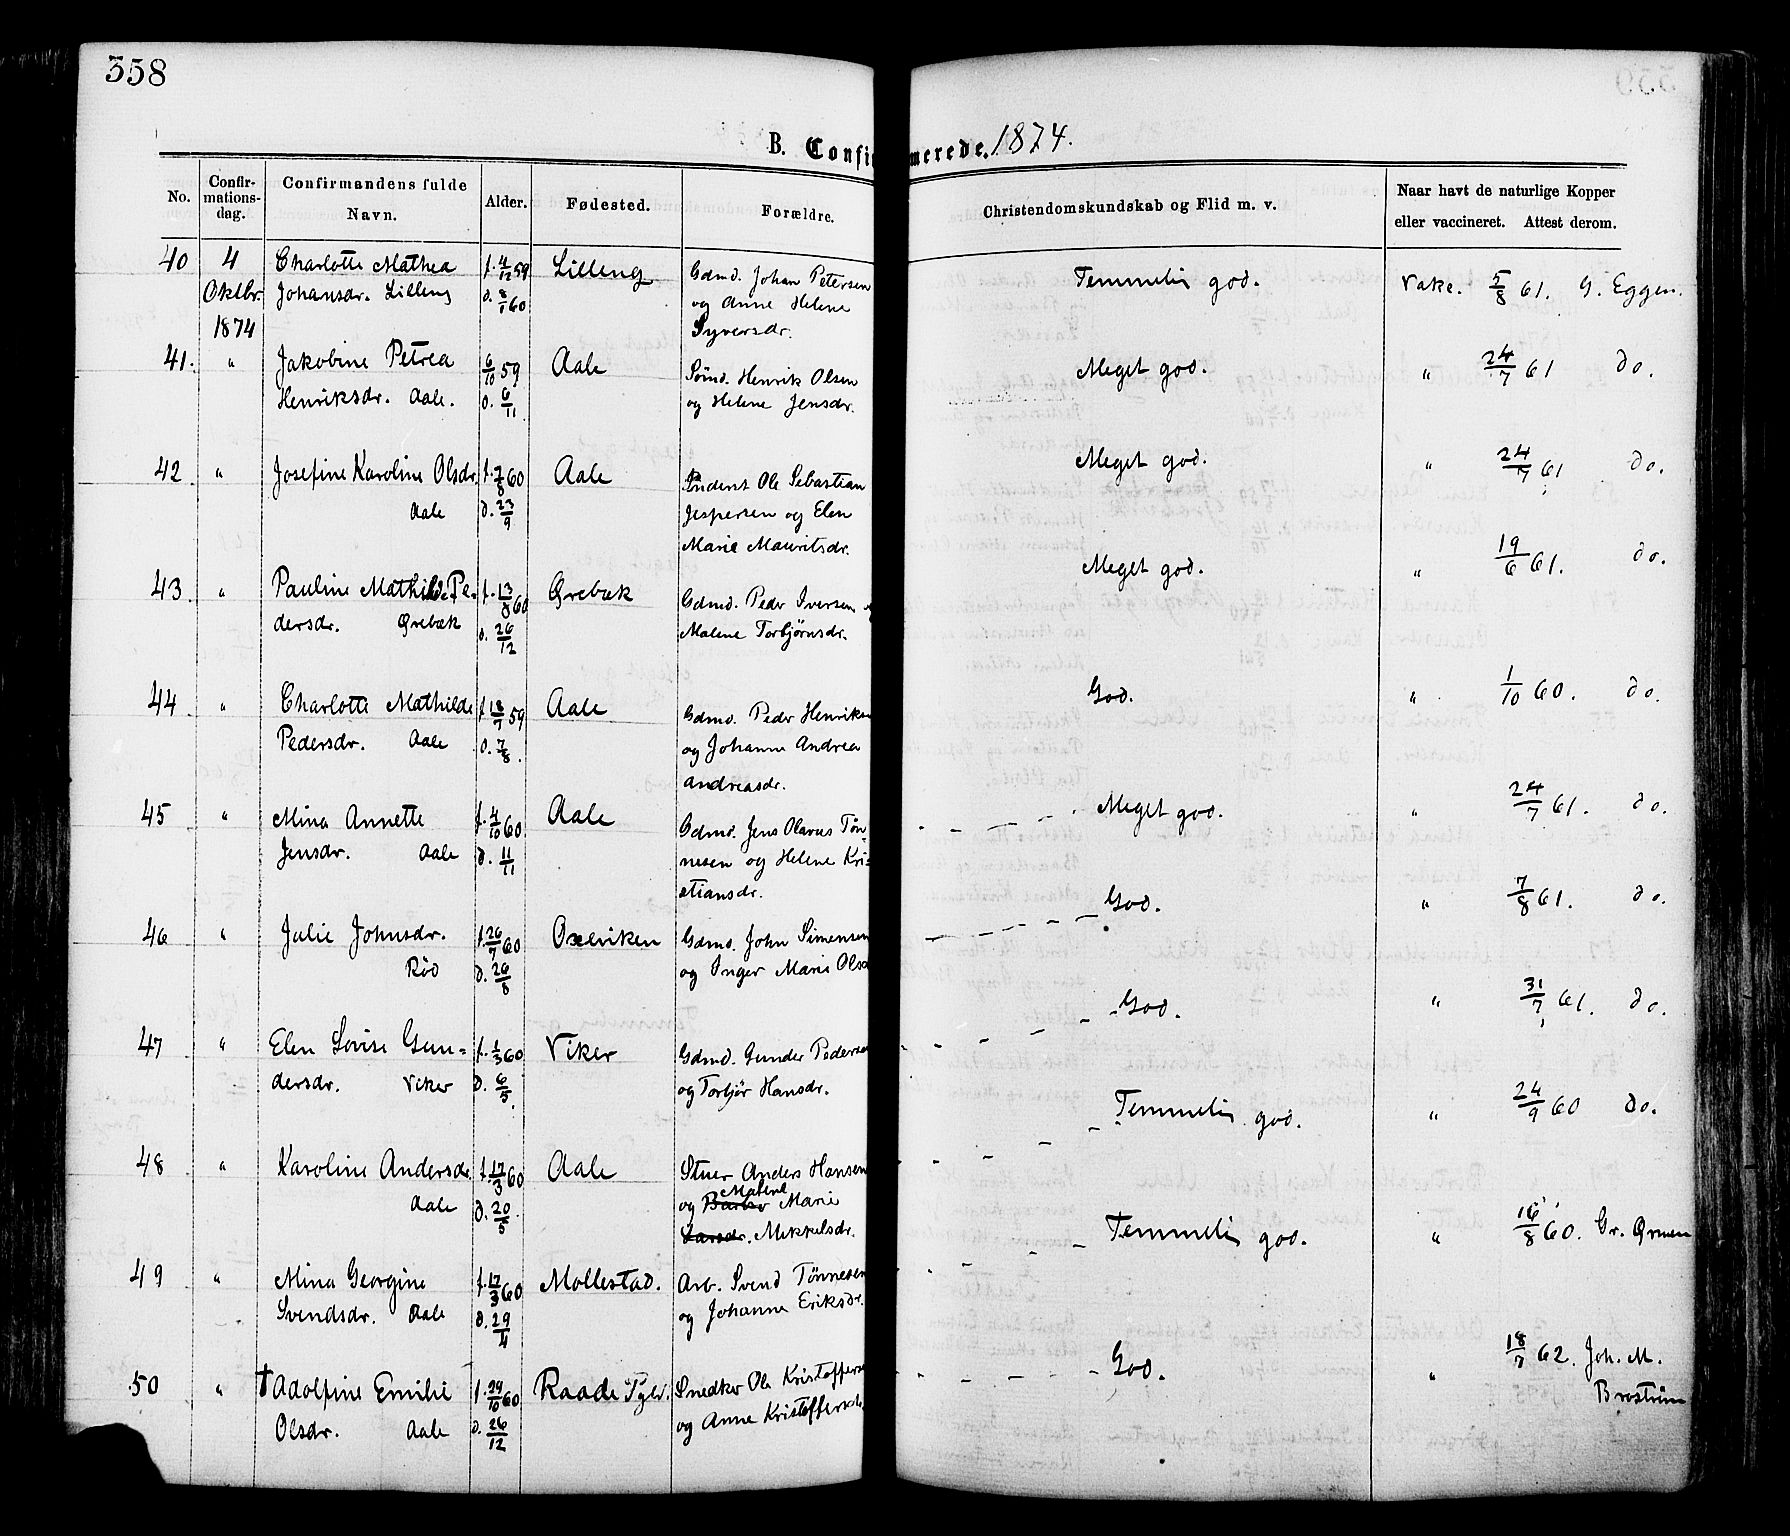 358
B. Confirmerede. 1874.
No.
Confir-
mations-
dag.
Confirmandens fulde
Navn.
Alder.
Fødested.
Forældre.
Christendomskundskab og Flid m. v.
Naar havt de naturlige Kopper
eller vaccineret. Attest derom.
40 4 Charlotte Mathea f. 4/12 59 Lilleng Gdmd. Johan Petersen Temmelig god. Vakc. 5/8 61. G. Eggen.
Oktbr. Johansdr. Lilleng d. 8/1 60 og Anne Helene
1874 Syversdr.
41. " Jakobine Petrea 6/10 59 Aale Sømd. Henrik Olsen Meget god. " 24/7 61 do.
Henriksdr. Aale. d. 6/11 og Helene Jensdr.
42 " Josefine Karoline Olsdr. f. 2/8 60 Aale Ole Sebastian Meget god. " 24/7 61 do.
Aale d. 23/9 Jespersen og Elen
Marie Mauritsdr.
43 " Pauline Mathilde Pe- f. 13/8 60 Ørebæk Gdmd. Peder Iversen Meget god. " 19/6 61. do.
dersdr. Ørebæk d. 26/12 Malene Torbjørnsdr.
44 " Charlotte Mathilde f. 18/7 59 Aale Gdmd. Peder Henriksen God. " 1/10 60. do.
Pedersdr. Aale d. 7/8. og Johanne Andrea
Andreasdr.
45 " Mina Annette f. 4/10 60 Aale Gdmd. Jens Olavus Tøn- Meget god. " 24/7 61. do.
Jensdr. Aale d. 11/11 nesen og Helene Kri-
stiansdr.
46 " Julie Johnsdr. f. 26/7 60 Oxeviken Gdmd. John Simensen God. " 7/8 61. do.
Rød d. 26/8 og Inger Marie Olsd
47 " Elen Lovise Gun- f. 1/3 60 Viker Gdmd. Gunder Pederse God. " 31/7 61. do.
dersdr. Viker d. 6/5. og Torbjør Hansdr.
48 " Karoline Andersdr. f. 17/3 60 Aale Stuer Anders Hansen Temmelig god. " 24/9 60 do.
Aale d. 20/5. og Barbro Malene Marie
Larsdr. Mikkelsdr.
49 " Mina Georgine f. 17/3 60 Mollestad. Arb. Svend Tønnesen Temmelig god. " 16/8 60. Gr. Ørmen
Svendsdr. Aale d. 29/4 og Johanne Eriksdr.
50 " † Adolfine Emilie f. 29/10 60 Raade Pgld. Snedker Ole Kristofferse God. " 18/7 62. Joh. M.
Olsdr. Aale d. 26/12 og Anne Kristoffersdr. Broström